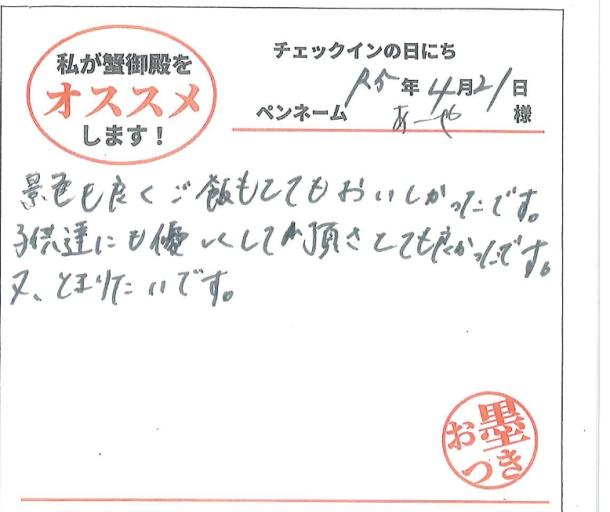 私が蟹御殿を
オススメ
します！
チェックインの日にち
R5年4月21日
ペンネーム あーや 様
景色も良くご飯もとてもおいしかったです。
子供達にも優しくして頂きとても良かったです。
又、とまりたいです。
お墨
つき